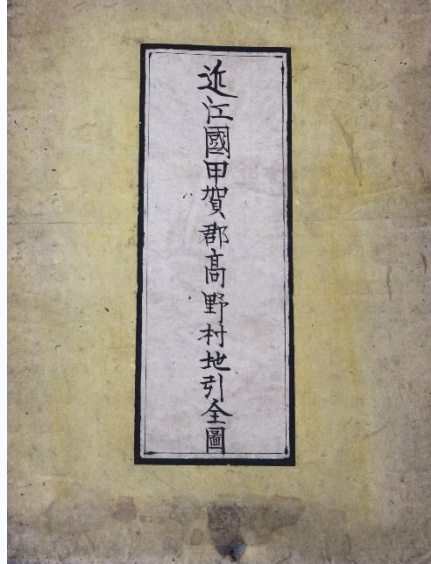 近江國甲賀郡高野村地引全圖